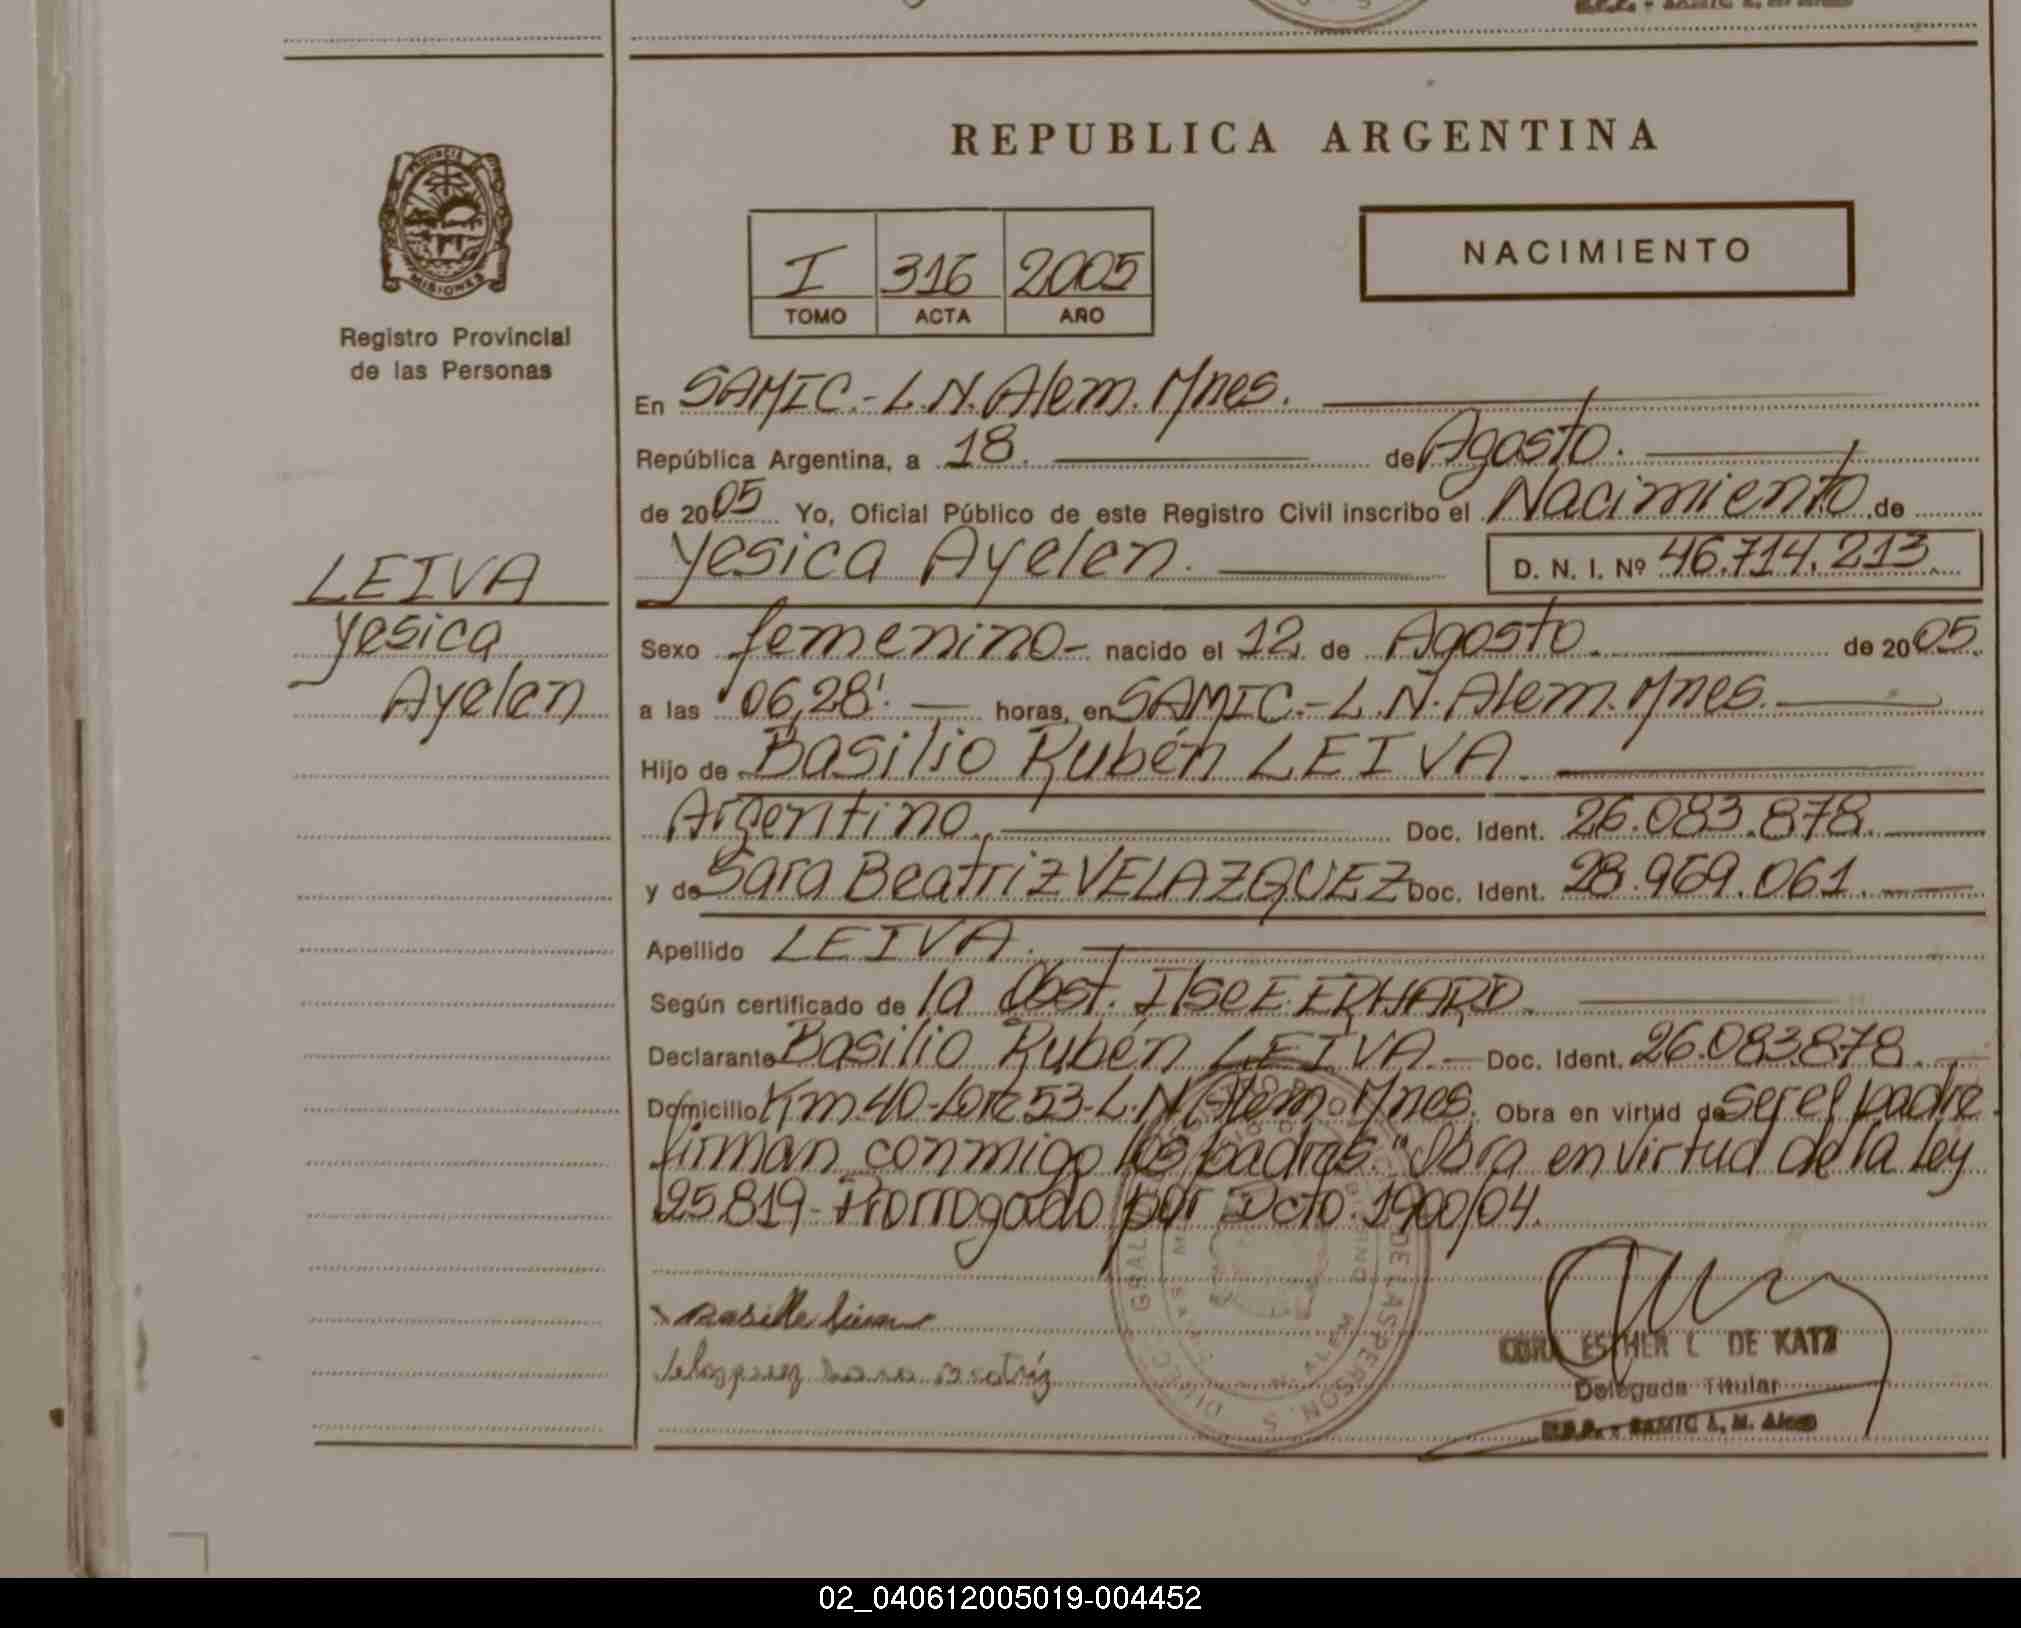 REPUBLICA ARGENTINA
PROVINCIA DE MISIONES
Registro Provincial
de las Personas
I 316 2005
TOMO ACTA AÑO
NACIMIENTO
En SAMIC.-L.N.Alem.Mnes.
República Argentina, a 18. de Agosto.
de 2005 Yo, Oficial Público de este Registro Civil inscribo el Nacimiento de
Yesica Ayelen. D. N. I. Nº 46.714.213
LEIVA
Yesica
Ayelen
Sexo femenino- nacido el 12 de Agosto. de 2005.
a las 06,28'. horas, en SAMIC.-L.N.Alem.Mnes.
Hijo de Basilio Rubén LEIVA
Argentino. Doc. Ident. 26.083.878.
y de Sara Beatriz VELAZQUEZ Doc. Ident. 28.969.061.
Apellido LEIVA.
Según certificado de la Obst. Ilse E. ERHARD.
Declarante Basilio Rubén LEIVA.- Doc. Ident. 26.083.878.
Domicilio Km.40-Lote 53-L.N.Alem.Mnes. Obra en virtud de ser el padre.
firman conmigo los padres."Obra en virtud de la Ley
25.819-Prorrogado por Dcto.1900/04.
ESTHER L DE KATZ
Delegada Titular
SAMIC L. N. Alem
02_040612005019-004452